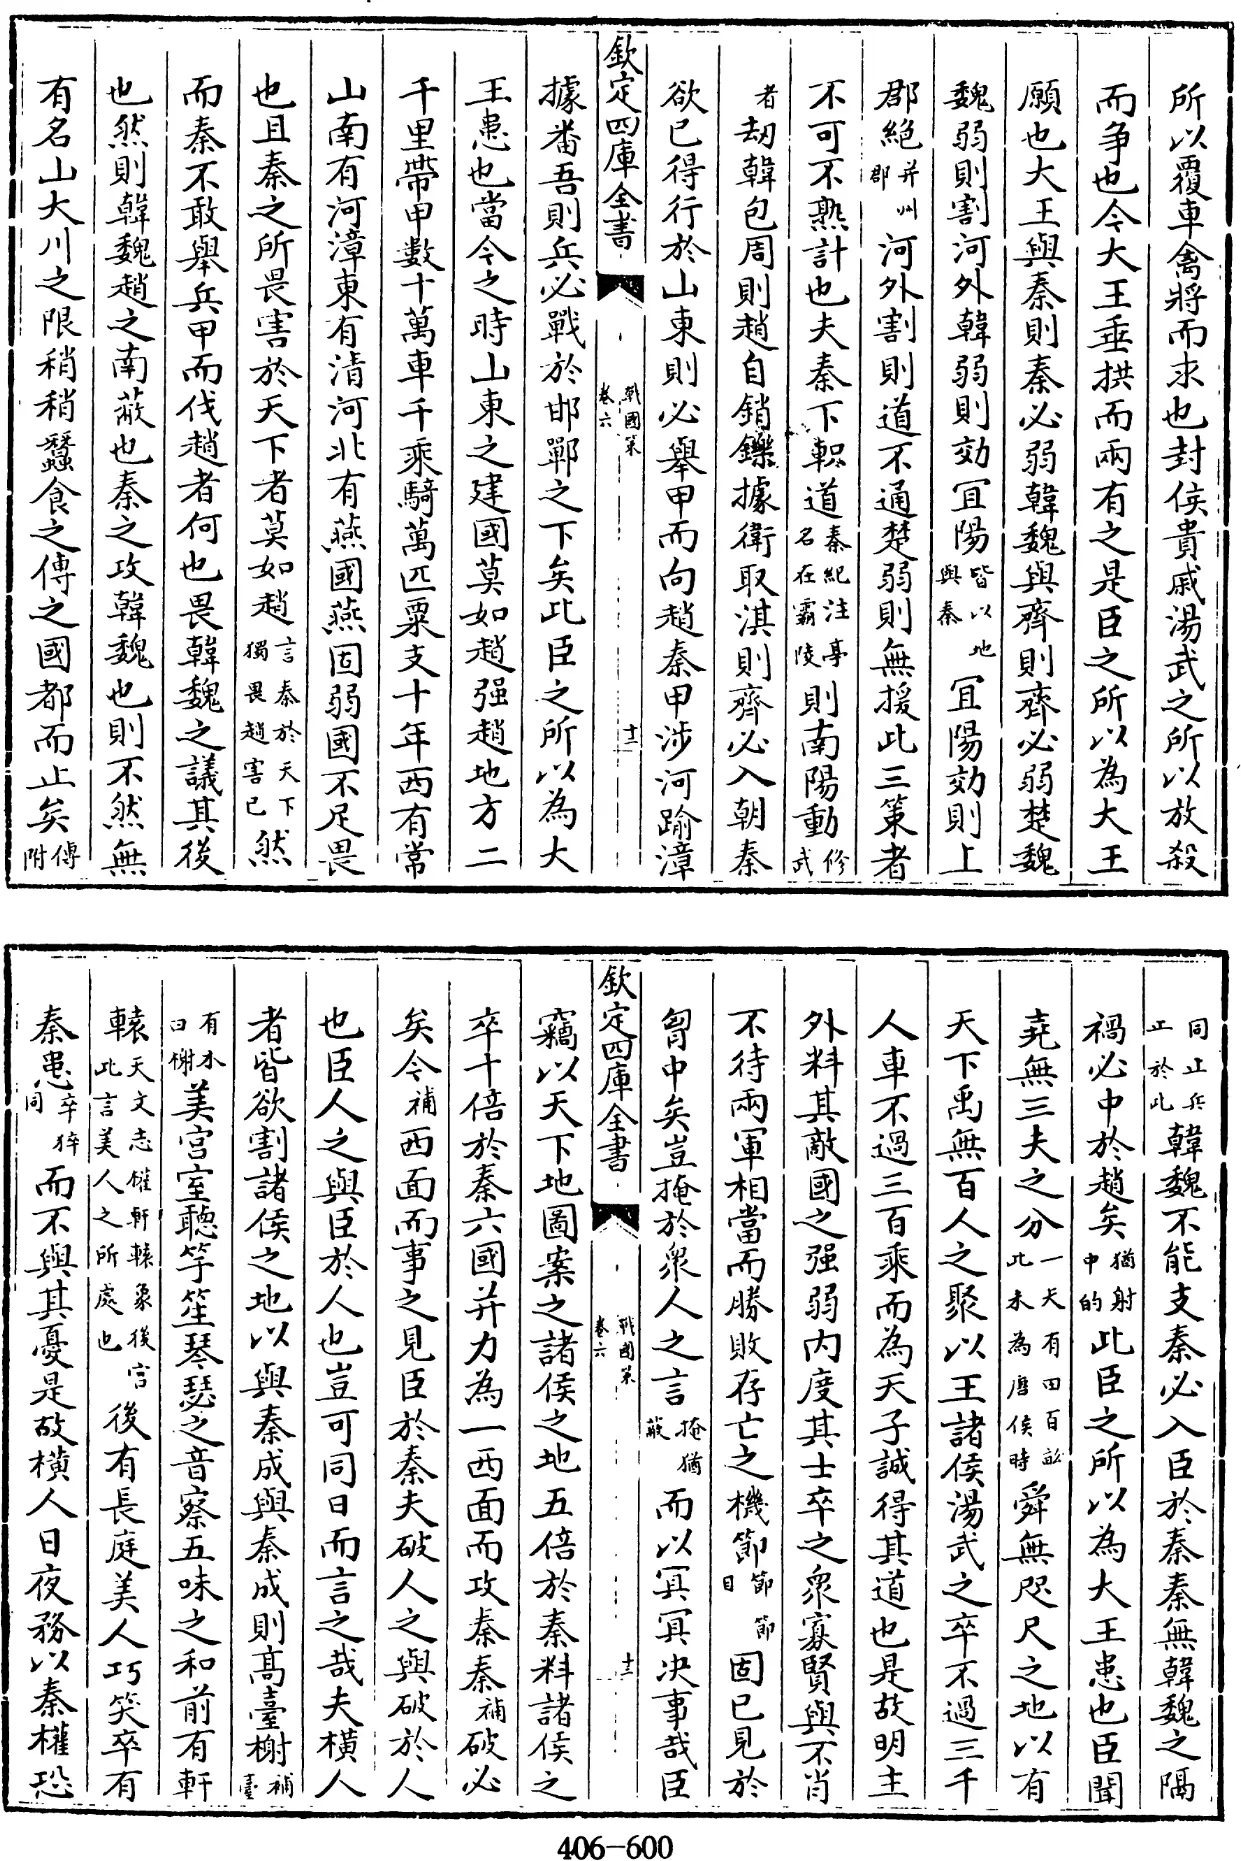 所以覆車禽將而求也封侯貴戚湯武之所以放殺
而爭也今大王垂拱而兩有之是臣之所以為大王
願也大王與秦則秦必弱韓魏與齊則齊必弱楚魏
魏弱則割河外韓弱則効冝陽皆以地與秦冝陽効則上
郡絶并州郡河外割則道不通楚弱則無援此三策者
不可不熟計也夫秦下軹道秦紀注亭名在霸陵則南陽動修武
者劫韓包周則趙自銷鑠據衛取淇則齊必入朝秦
欲已得行於山東則必舉甲而向趙秦甲涉河踰漳
欽定四庫全書
戰國策
卷六
十二
據番吾則兵必戰於邯鄲之下矣此臣之所以為大
王患也當今之時山東之建國莫如趙强趙地方二
千里帶甲數十萬車千乘騎萬匹粟支十年西有常
山南有河漳東有清河北有燕國燕固弱國不足畏
也且秦之所畏害於天下者莫如趙言秦於天下獨畏趙害已然
而秦不敢舉兵甲而伐趙者何也畏韓魏之議其後
也然則韓魏趙之南蔽也秦之攻韓魏也則不然無
有名山大川之限稍稍蠶食之傅之國都而止矣傅附
同止兵止於此韓魏不能支秦必入臣於秦秦無韓魏之隔
禍必中於趙矣猶射中的此臣之所以為大王患也臣聞
堯無三夫之分一夫有田百畝此未為唐侯時舜無咫尺之地以有
天下禹無百人之聚以王諸侯湯武之卒不過三千
人車不過三百乘而為天子誠得其道也是故明主
外料其敵國之强弱内度其士卒之衆寡賢與不肖
不待兩軍相當而勝敗存亡之機節節節目固已見於
胷中矣豈掩於衆人之言掩猶蔽而以冥冥決事哉臣
欽定四庫全書
戰國策
卷六
十三
竊以天下地圖案之諸侯之地五倍於秦料諸侯之
卒十倍於秦六國并力為一西面而攻秦秦補破必
矣今補西面而事之見臣於秦夫破人之與破於人
也臣人之與臣於人也豈可同日而言之哉夫橫人
者皆欲割諸侯之地以與秦成與秦成則高臺榭補臺
有木曰榭美宫室聽竽笙琴瑟之音察五味之和前有軒
轅天文志權軒轅象後宫此言美人之所處也後有長庭美人巧笑卒有
秦患卒猝同而不與其憂是故橫人日夜務以秦權恐
406-600